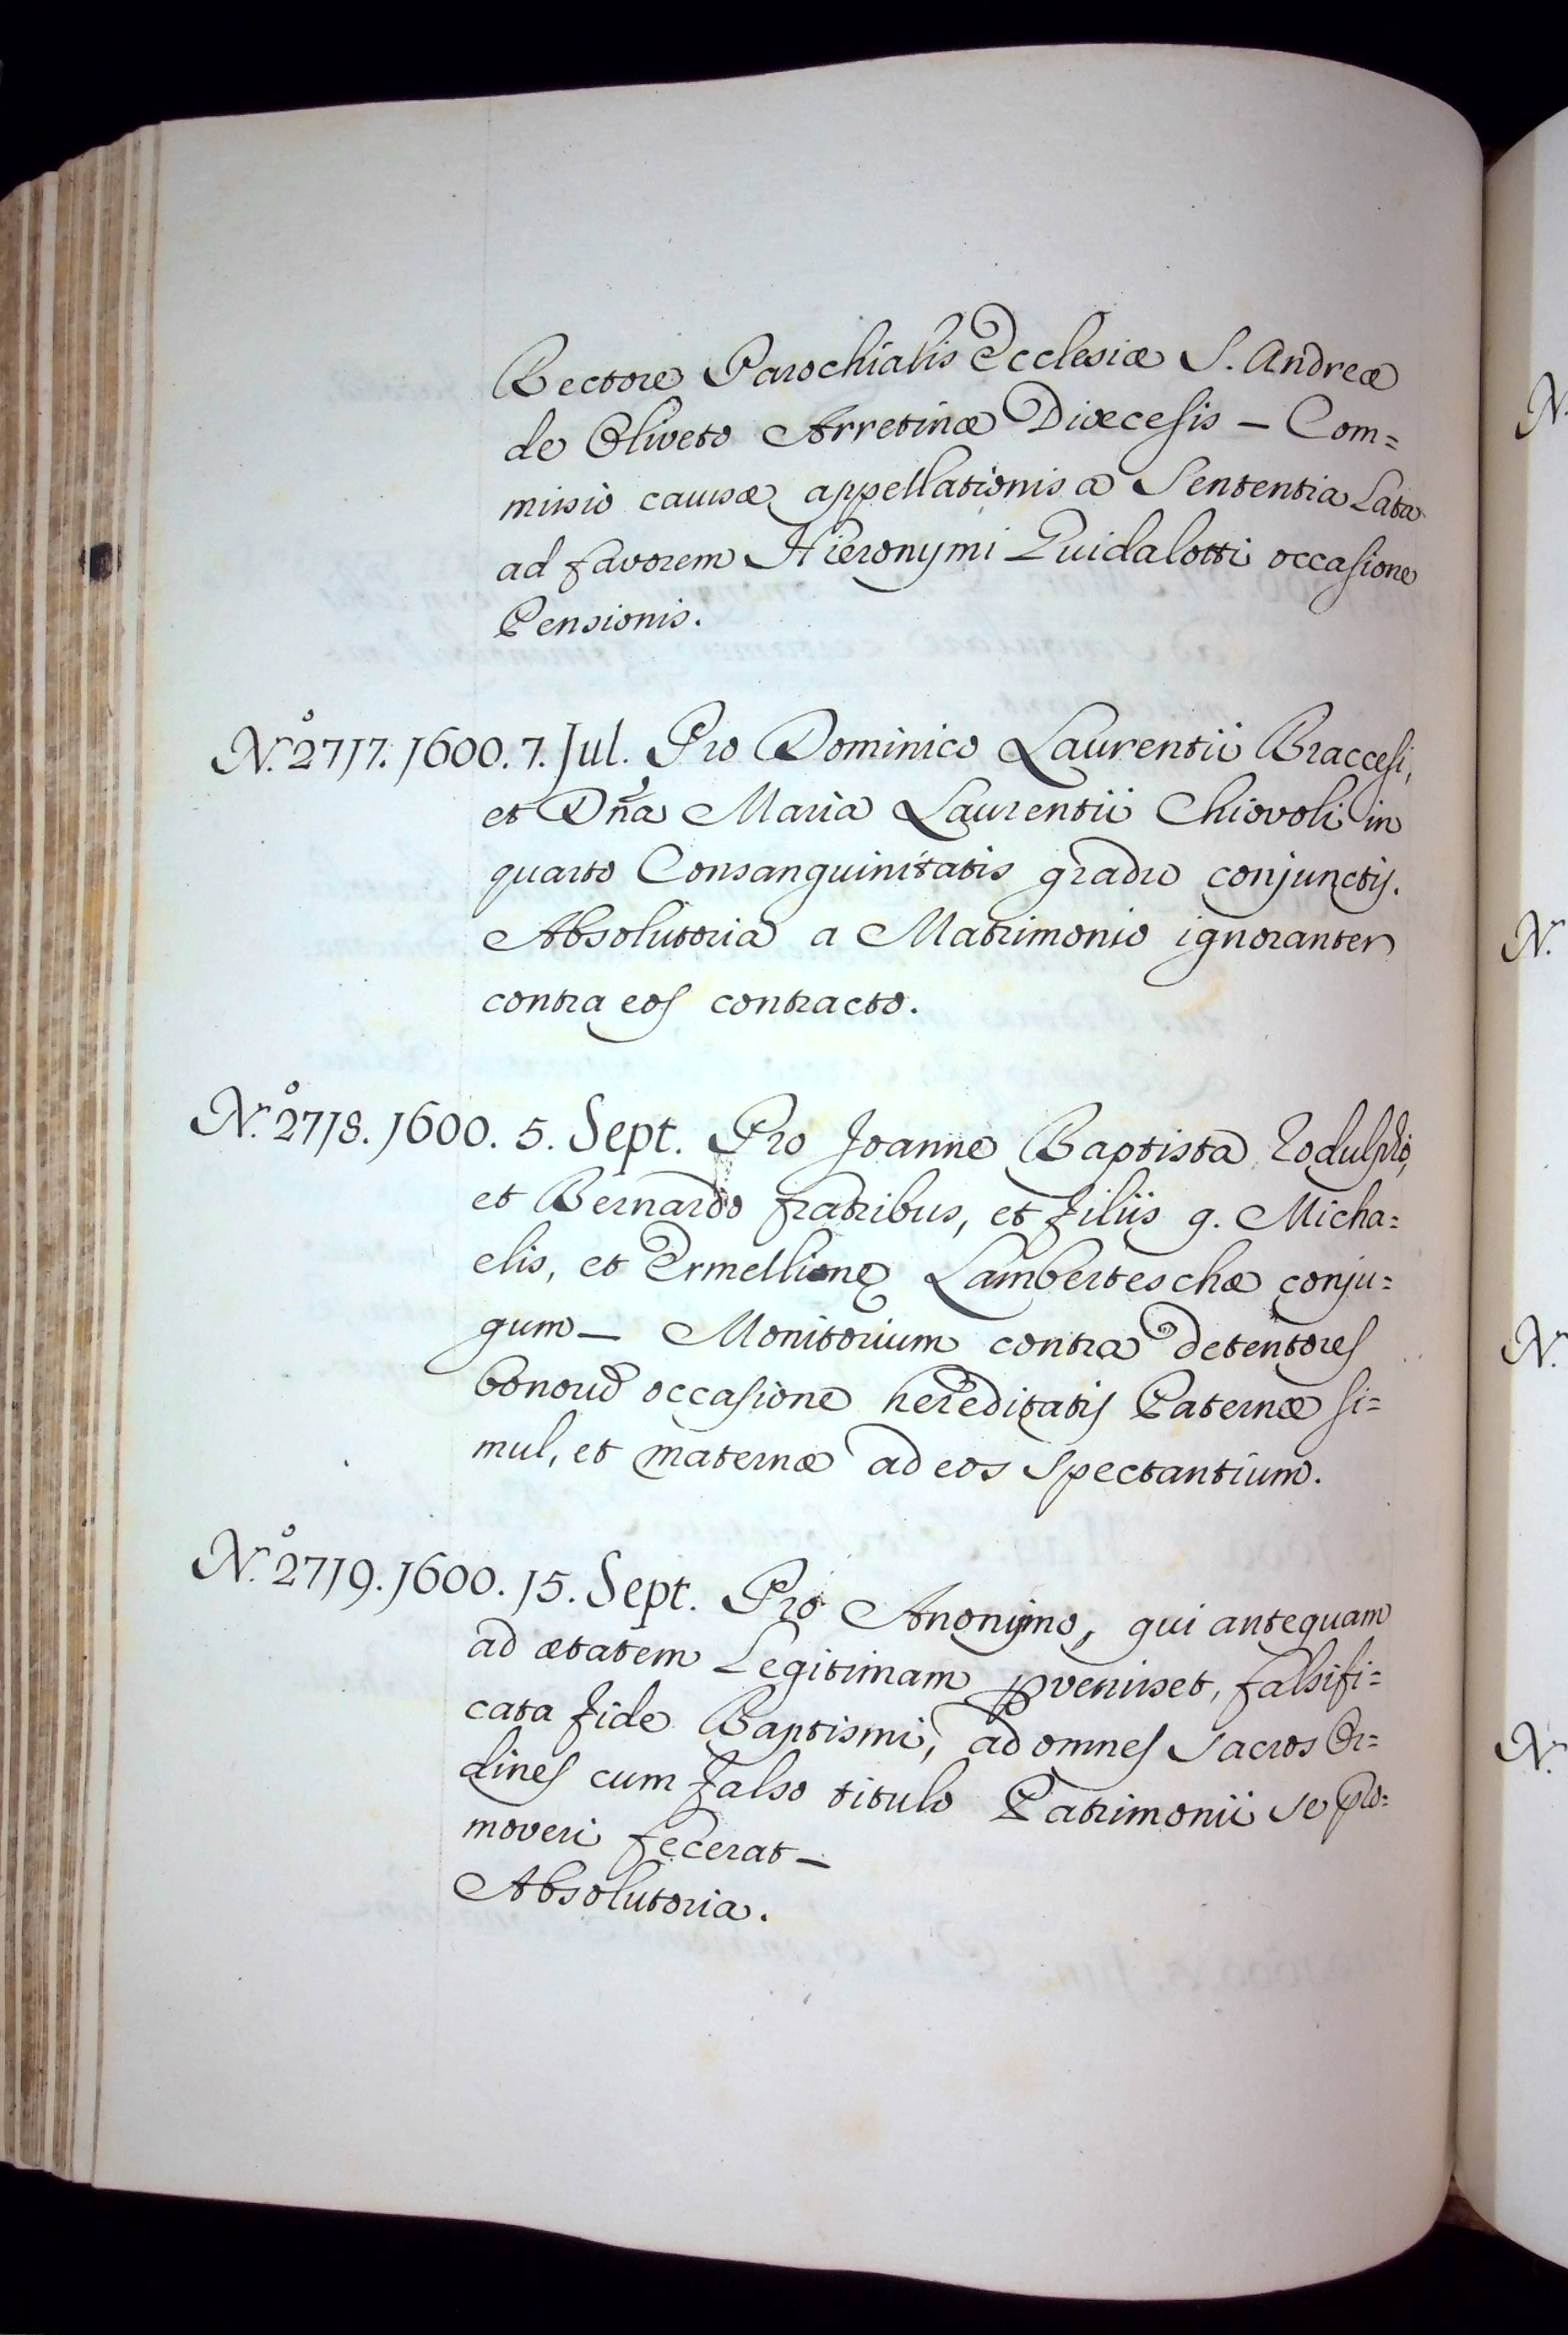 Rectore Parochialis Ecclesiæ S. Andreæ
de Oliveto Arretinæ Diœcesis – Com=
missio causæ appellationis a Sententia Lata
ad favorem Hieronymi Guidalotti occasione
Pensionis.
N.º 2717. 1600. 7. Jul. Pro Dominico Laurentii Braccesi,
et Dña Maria Laurentii Chiovoli in
quarto Consanguinitatis gradu conjunctis.
Absolutoria a Matrimonio ignoranter
contra eos contracto.
N.º 2718. 1600. 5. Sept. Pro Joanne Baptista Rodulpho,
et Bernardo fratribus, et filiis q. Micha=
elis, et Ermellinę Lamberteschæ conju=
gum – Monitorium contra detentores
bonorū occasione hereditatis Paternæ si=
mul, et maternæ ad eos spectantium.
N.º 2719. 1600. 15. Sept. Pro Anonymo, qui antequam
ad ætatem Legitimam ꝑvenisset, falsifi=
cata fide Baptismi, ad omnes Sacros Or=
dines cum falso titulo Patrimonii se pro=
moveri fecerat –
Absolutoria.
N.
N.
N.
N.